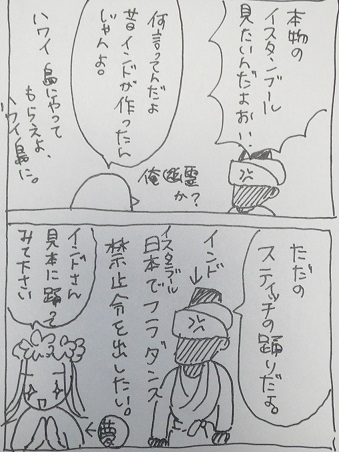 本物の
イスタンブール
見たいんだよおい。
何言ってんだよ
昔インドが作ったん
じゃんよ。
ハワイ島にやって
もらえよ、
ハワイ島に。
俺幽霊
か?
ただの
スティッチの踊りだよ。
インド
イスタブール
日本でフラダンス
禁止令を出したい。
インドさん
見本に踊って
みて下さい
夢